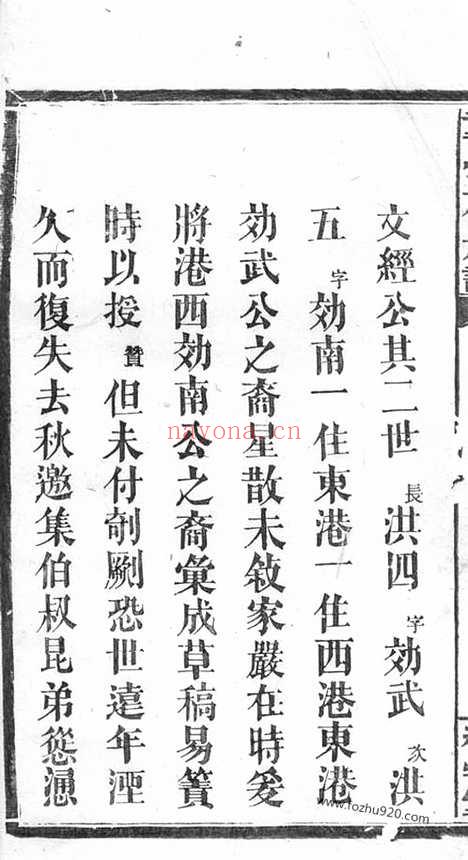 文經公其二世長洪四字効武次洪
五字効南一住東港一住西港東港
効武公之裔星散未敍家嚴在時爰
將港西効南公之裔彙成草稿易簀
時以授贊但未付剞劂恐世遠年湮
久而復失去秋邀集伯叔昆弟慫慂
nayona.cn
www.fozhu920.com